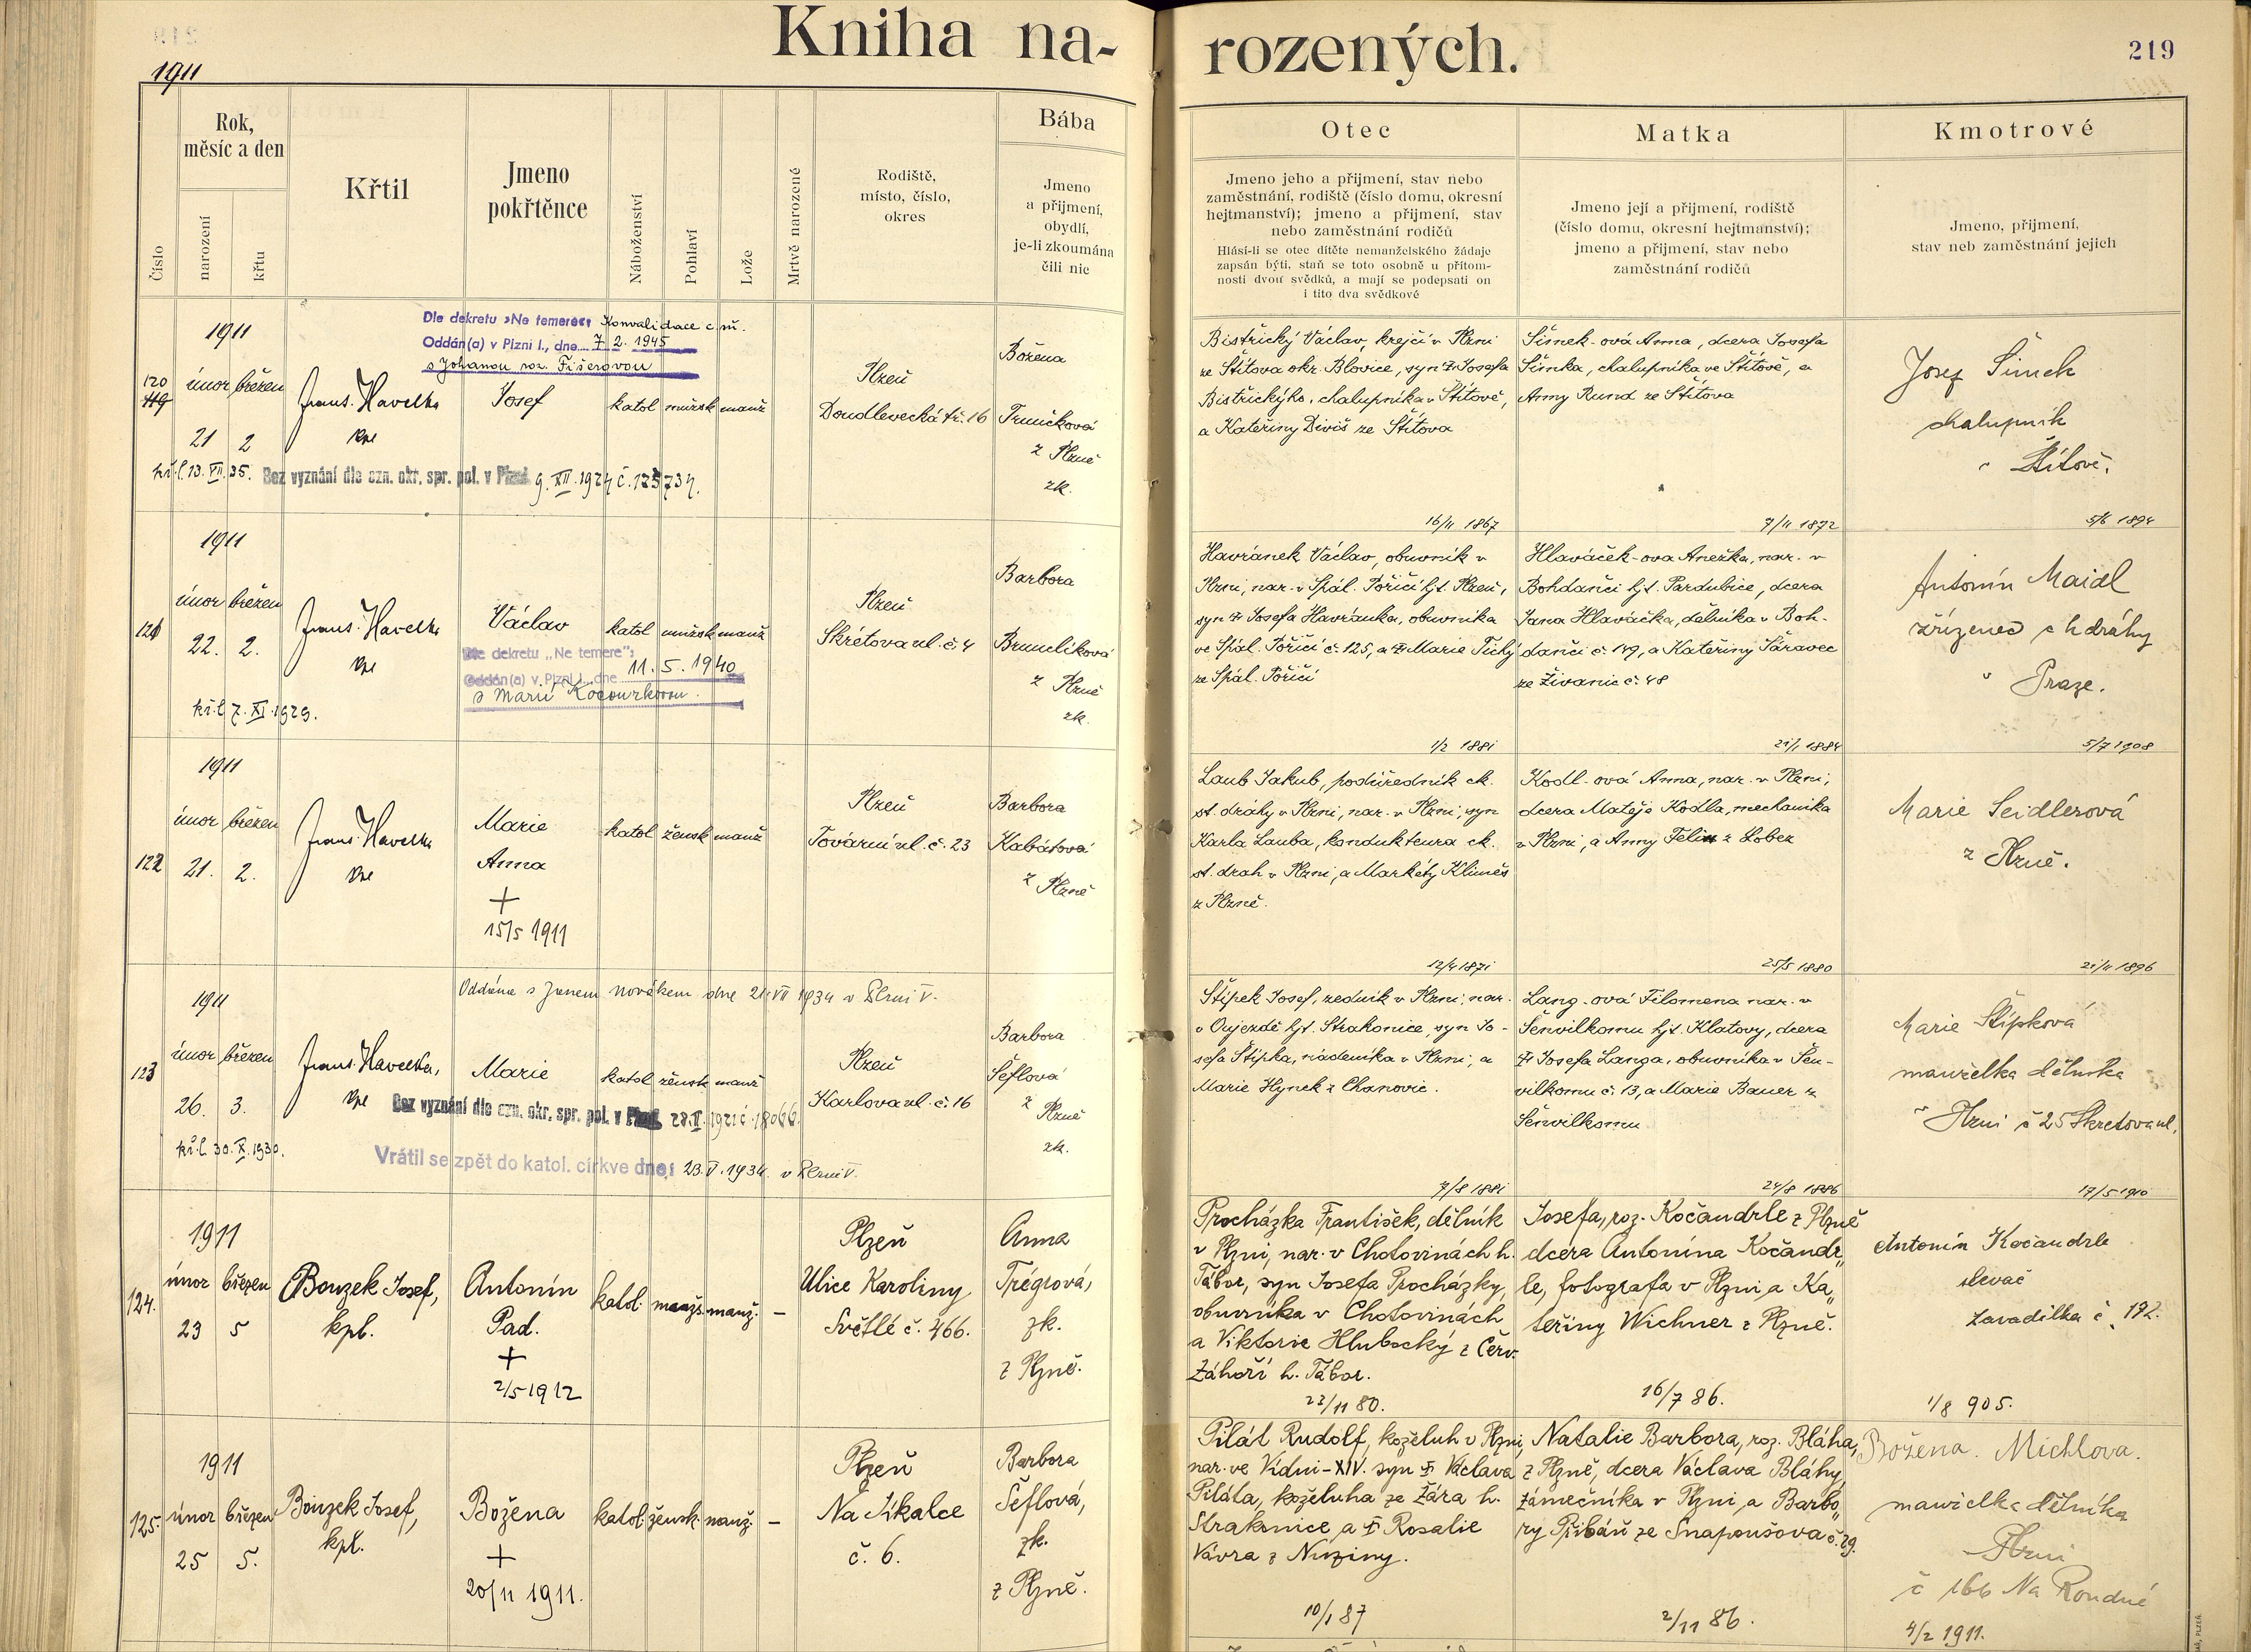 Kniha na-
rozených.
219
1911
Číslo
Rok,
měsíc a den
narození
křtu
Křtil
Jmeno
pokřtěnce
Náboženství
Pohlaví
Lože
Mrtvě narozené
Rodiště,
místo, číslo,
okres
Bába
Jmeno
a přijmení,
obydlí,
je-li zkoumána
čili nic
Otec
Jmeno jeho a přijmení, stav nebo
zaměstnání, rodiště (číslo domu, okresní
hejtmanství); jmeno a přijmení, stav
nebo zaměstnání rodičů
Hlásí-li se otec dítěte nemanželského žádaje
zapsán býti, staň se toto osobně u přítom-
nosti dvou svědků, a mají se podepsati on
i tito dva svědkové
Matka
Jmeno její a přijmení, rodiště
(číslo domu, okresní hejtmanství);
jmeno a přijmení, stav nebo
zaměstnání rodičů
Kmotrové
Jmeno, přijmení,
stav neb zaměstnání jejich
1911
120
119
únor březen
21 2
křl. 13. XII. 35.
Frant. Havelka
kpe
Dle dekretu »Ne temere«: Konvalidace c. m.
Oddán(a) v Plzni I., dne 7. 2. 1945
s Johanou roz. Fišerovou
Josef
katol mužsk manž
Bez vyznání dle ozn. okr. spr. pol. v Plzni 9. XII. 1924 č. 125734.
Plzeň
Doudlevecká tř. 16
Božena
Truníčková
z Plzně
zk.
Bistřický Václav, krejčí v Plzni
ze Štítova okr. Blovice, syn † Josefa
Bistřického, chalupníka v Štítově,
a Kateřiny Diviš ze Štítova
16/11 1867
Šimek-ová Anna, dcera Josefa
Šimka, chalupníka ve Štítově, a
Anny Rund ze Štítova
7/11 1872
Josef Šimek
chalupník
v Štítově.
5/6 1894
1911
121
únor březen
22. 2.
křl. 7. XI. 1929.
Frant. Havelka
kpe
Václav
Dle dekretu „Ne temere“:
Oddán(a) v Plzni I., dne 11. 5. 1940
s Marií Kocourkovou.
katol mužsk manž
Plzeň
Skrétova ul. č. 4
Barbora
Brumlíková
z Plzně
zk.
Havránek Václav, obuvník v
Plzni, nar. v Spál. Poříčí hjt. Plzeň,
syn † Josefa Havránka, obuvníka
ve Spál. Poříčí č. 125, a † Marie Tichý
ze Spál. Poříčí
1/2 1881
Hlaváček-ova Anežka, nar. v
Bohdanči hjt. Pardubice, dcera
Jana Hlaváčka, dělníka v Boh-
danči č. 149, a Kateřiny Šáravec
ze Živanic č. 48
21/1 1884
Antonín Maidl
zřízenec c k dráhy
v Praze.
5/7 1908
1911
122
únor březen
21. 2.
Frant. Havelka
kpe
Marie
Anna
+
15/5 1911
katol žensk manž
Plzeň
Tovární ul. č. 23
Barbora
Kabátová
z Plzně
Laub Jakub, podúředník ck.
st. dráhy v Plzni, nar. v Plzni, syn
Karla Lauba, kondukteura ck.
st. drah v Plzni, a Markéty Klimeš
z Plzně.
12/4 1871
Kodl-ová Anna, nar. v Plzni,
dcera Matěje Kodla, mechanika
v Plzni, a Anny Felix z Lobez
25/5 1880
Marie Seidlerová
z Plzně.
21/11 1896
1911
123
únor březen
26. 3.
křl. 30. X. 1930.
Frant. Havelka,
kpe
Oddána s Janem Novákem dne 21. VII 1934 v Plzni V.
Marie
katol žensk manž
Bez vyznání dle ozn. okr. spr. pol. v Plzni 28. II. 1921 č. 18066.
Vrátil se zpět do katol. církve dne: 23. V. 1934. v Plzni V.
Plzeň
Karlova ul. č. 16
Barbora
Šeflová
z Plzně
zk.
Štípek Josef, zedník v Plzni, nar.
v Oujezdě hjt. Strakonice, syn Jo-
sefa Štípka, nádeníka v Plzni, a
Marie Hynek z Chanovic.
7/8 1881
Lang-ová Filomena nar. v
Šenvilkomu hjt. Klatovy, dcera
† Josefa Langa, obuvníka v Šen-
vilkomu č. 13, a Marie Bauer z
Šenvilkomu
24/8 1886
Marie Štípková
manželka dělníka
v Plzni č 25 Skretova ul.
17/5 1910
1911
124.
únor březen
23 5
Bouzek Josef,
kpl.
Antonín
Pad.
+
2/5 1912
katol. mužs. manž. –
Plzeň
Ulice Karoliny
Světlé č. 466.
Anna
Trégrová,
zk.
z Plzně.
Procházka František, dělník
v Plzni, nar. v Chotovinách h.
Tábor, syn Josefa Procházky,
obuvníka v Chotovinách
a Viktorie Hlubocký z Červ.
Záhoří h. Tábor.
23/11 80.
Josefa, roz. Kočandrle z Plzně
dcera Antonína Kočandr„
le, fotografa v Plzni a Ka„
teřiny Wichner z Plzně.
16/7 86.
Antonín Kočandrle
slevač
Zavadilka č. 192.
1/8 905.
1911
125.
únor březen
25 5.
Bouzek Josef,
kpl.
Božena
+
20/11 1911.
katol. žensk. manž. –
Plzeň
Na Jíkalce
č. 6.
Barbora
Šeflová,
zk.
z Plzně.
Pilát Rudolf, koželuh v Plzni,
nar. ve Vídni-XIV. syn † Václava
Piláta, koželuha ze Žára h.
Strakonice a † Rosalie
Vávra z Nuziny.
10/1 87
Natalie Barbora, roz. Bláha,
z Plzně, dcera Václava Bláhy,
zámečníka v Plzni a Barbo„
ry Přibáň ze Snapoušova č. 29.
2/11 86.
Božena Michlova.
manželka dělníka
Plzni
č 166 Na Roudné
4/2 1911.